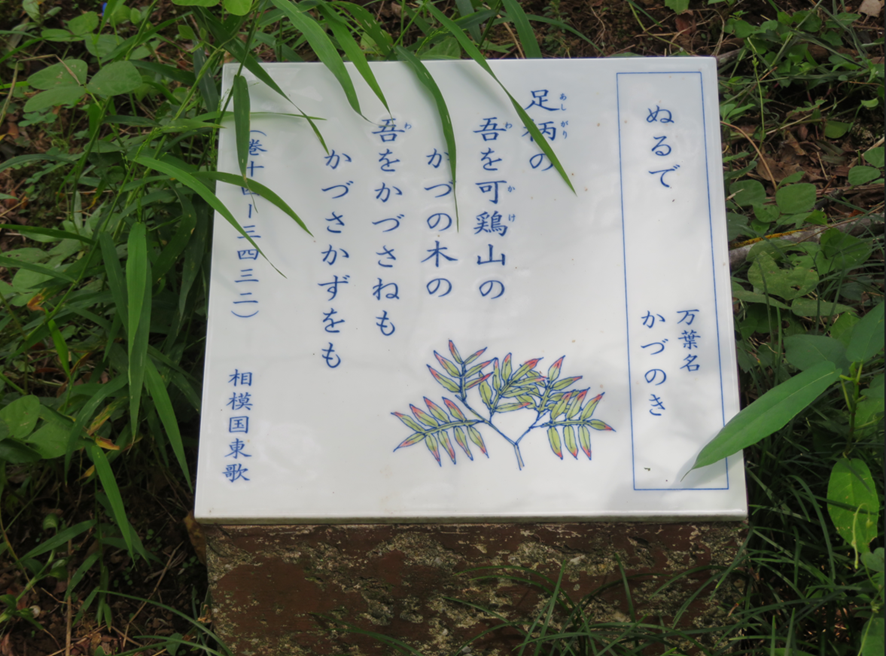 ぬるで
万葉名
かづのき
足柄の
吾を可鶏山の
かづの木の
吾をかづさねも
かづさかずをも
（巻十四ー三四三二）
相模国東歌